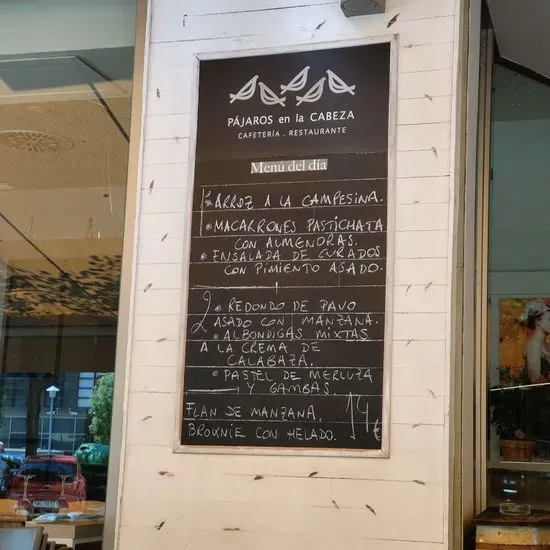 PÁJAROS en la CABEZA
CAFETERÍA . RESTAURANTE
Menú del día
1 • ARROZ A LA CAMPESINA.
• MACARRONES PASTICHATA
CON ALMENDRAS.
• ENSALADA DE CURADOS
CON PIMIENTO ASADO.
2 • REDONDO DE PAVO
ASADO CON MANZANA.
• ALBONDIGAS MIXTAS
A LA CREMA DE
CALABAZA.
• PASTEL DE MERLUZA
Y GAMBAS.
FLAN DE MANZANA. 14 €
BROWNIE CON HELADO.